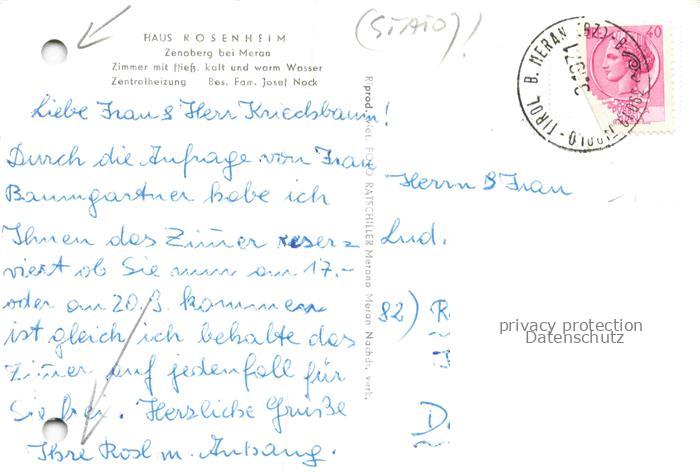 HAUS ROSENHEIM
Zenoberg bei Meran
Zimmer mit fließ. kalt und warm Wasser
Zentralheizung Bes. Fam. Josef Nock
(STAID)!
40
TIROLO - TIROL B. MERAN (BZ)
Liebe Frau & Herr Kriedsbaum!
Durch die Anfrage von Frau
Baumgartner habe ich
Ihnen das Zimer reser=
viert ob Sie nun am 17.-
oder am 20.3. kommen
ist gleich, ich behalte das
Zimer auf jedenfall für
Sie frei. Herzliche Grüße
Ihre Rosl m. Anhang.
Riprod. viet. Foto RATSCHILLER Merano Meran Nachdr. verb.
Herrn & Frau
Lud.
82)
privacy protection
Datenschutz